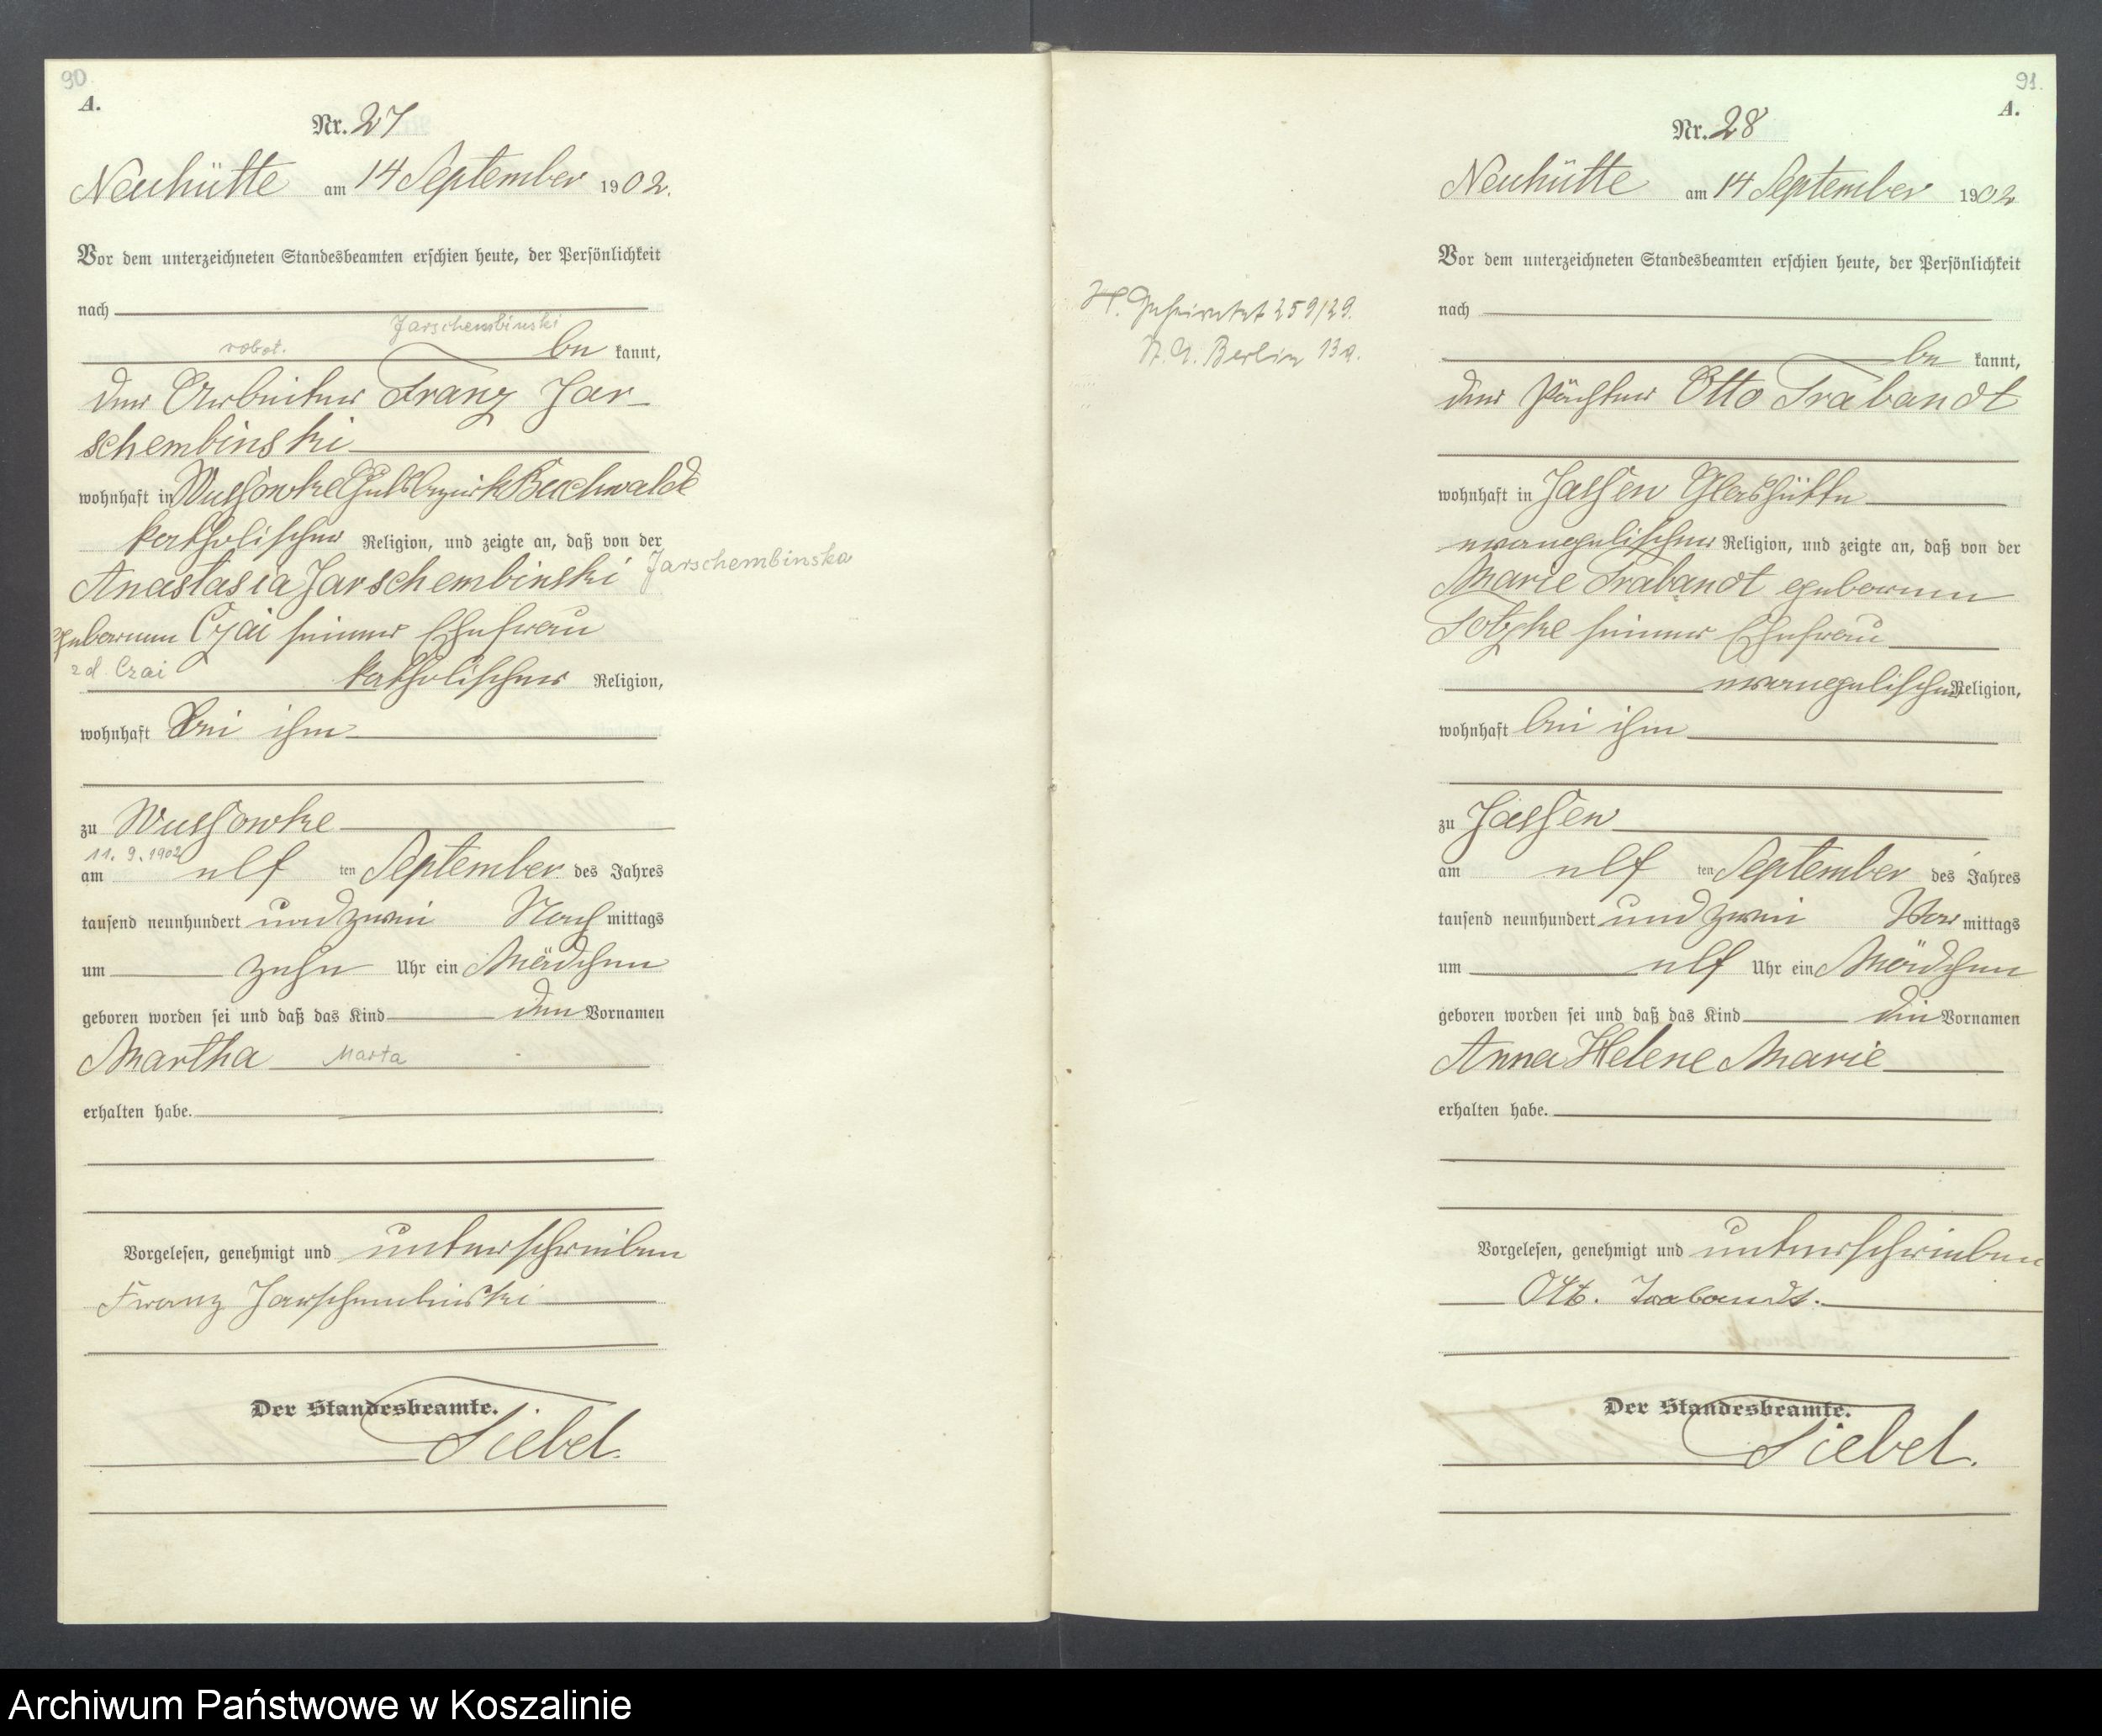 90
A.
Nr. 27
Neuhütte am 14 September 1902.
Vor dem unterzeichneten Standesbeamten erschien heute, der Persönlichkeit
nach
Jarschembinski
robot. be kannt,
der Arbeiter Franz Jar-
schembinski
wohnhaft in Wussowke Gutsbezirk Buchwalde
katholischer Religion, und zeigte an, daß von der
Anastasia Jarschembinski Jarschembinska
geborenen Czai seiner Ehefrau
zd. Czai katholischer Religion,
wohnhaft bei ihm
zu Wussowke
11. 9. 1902
am elf ten September des Jahres
tausend neunhundert und zwei Nach mittags
um zehn Uhr ein Mädchen
geboren worden sei und daß das Kind den Vornamen
Martha Marta
erhalten habe.
Vorgelesen, genehmigt und unterschrieben
Franz Jarschembinski
Der Standesbeamte.
Siebel.
91.
A.
Nr. 28
Neuhütte am 14 September 1902
Vor dem unterzeichneten Standesbeamten erschien heute, der Persönlichkeit
nach
be kannt,
der Pächter Otto Trabandt
wohnhaft in Jassen Glashütte
evangelischer Religion, und zeigte an, daß von der
Marie Trabandt geborenen
Totzke seiner Ehefrau
evangelischer Religion,
wohnhaft bei ihm
zu Jassen
am elf ten September des Jahres
tausend neunhundert und zwei Vor mittags
um elf Uhr ein Mädchen
geboren worden sei und daß das Kind die Vornamen
Anna Helene Marie
erhalten habe.
Vorgelesen, genehmigt und unterschrieben
Otto Trabandt.
Der Standesbeamte.
Siebel.
H. Geheiratet 259/29.
St. A. Berlin 13a.
Archiwum Państwowe w Koszalinie